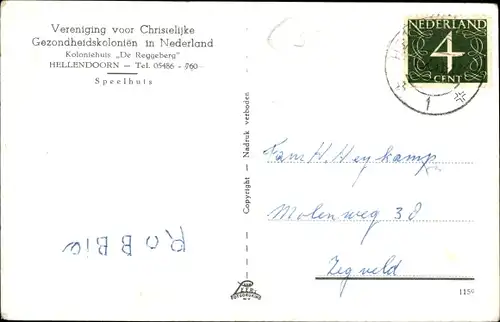 Vereniging voor Christelijke
Gezondheidskoloniën in Nederland
Koloniehuis „De Reggeberg"
HELLENDOORN — Tel. 05486 - 760
Speelhuis
NEDERLAND
4
CENT
1
Copyright - Nadruk verboden
Fam H. Heykamp
Molenweg 38
Zegveld
RoBBie
1159